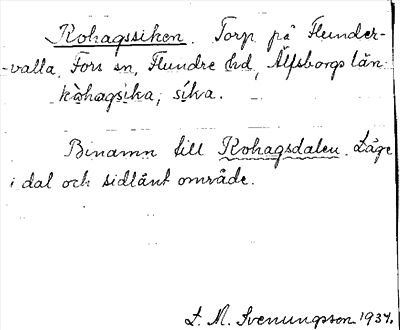 Kohagssiken. Torp på Flunder-
-valla, Fors sn, Flundre hd, Älfsborgs län
kòhagsika, síka.
Binamn till Kohagsdalen. Läge
i dal och sidlänt område.
L. M. Svenungsson 1934.